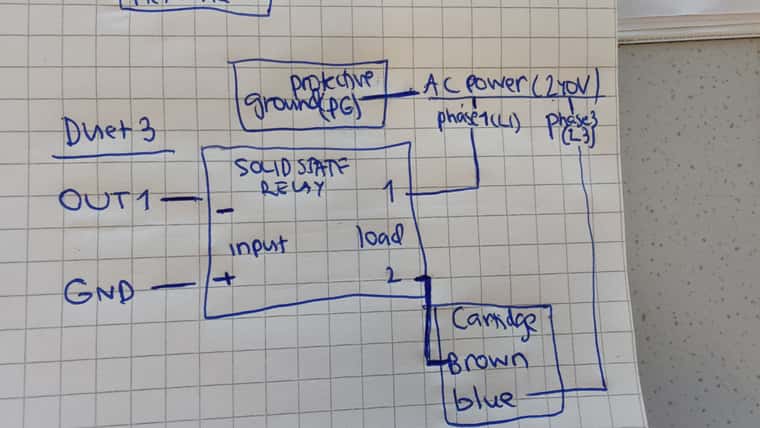 protective
ground(PG)
AC power (240V)
phase1(L1)
phase3
(L3)
Duet 3
SOLID STATE
RELAY
OUT1
-
1
input
load
GND
+
2
Cartridge
Brown
blue